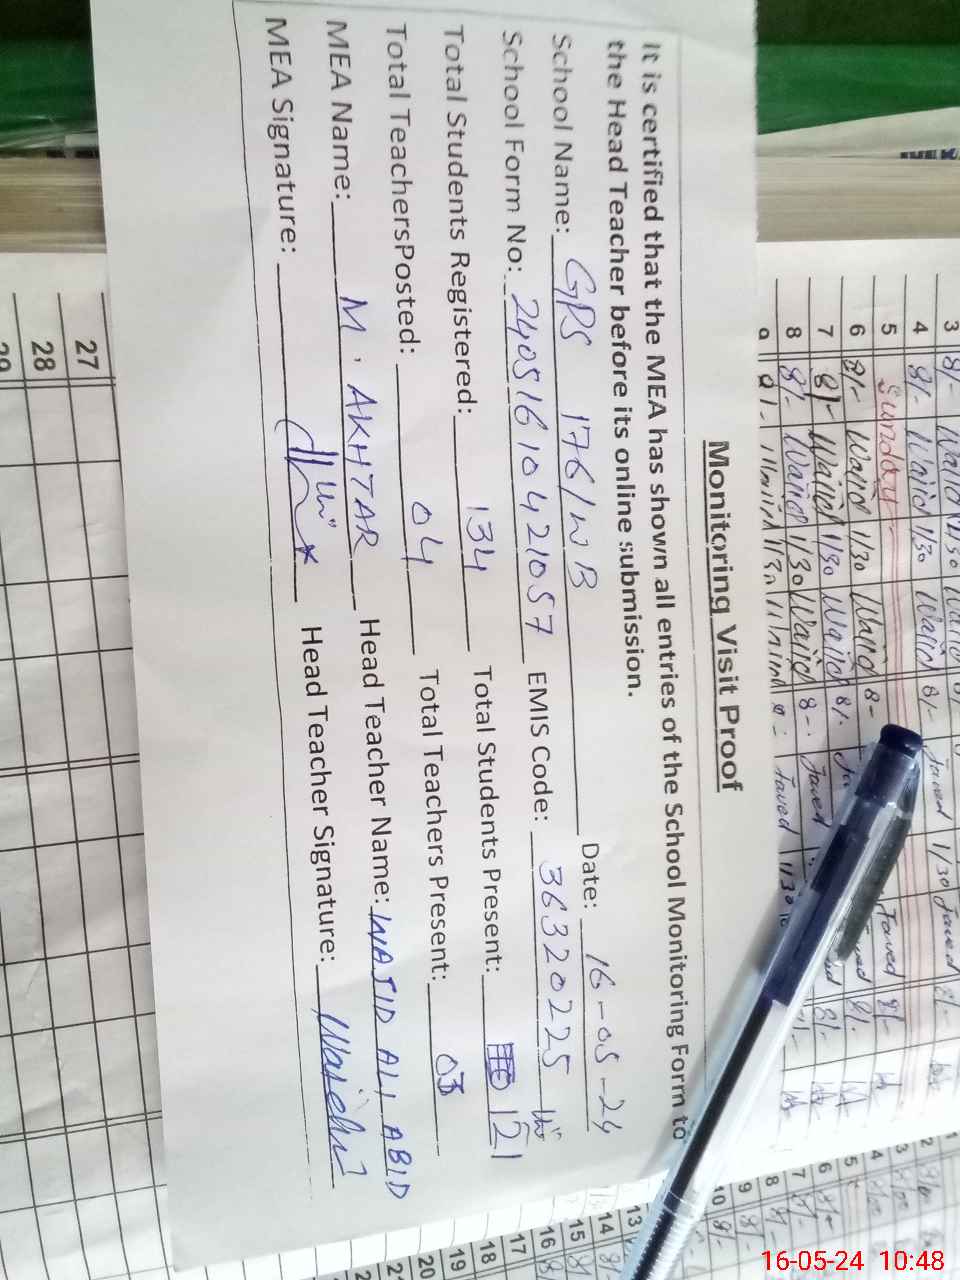 Monitoring Visit Proof
It is certified that the MEA has shown all entries of the School Monitoring Form to
the Head Teacher before its online submission.
School Name: GPS 176/WB Date: 16-05-24
School Form No: 24051610421057 EMIS Code: 36320225
Total Students Registered: 134 Total Students Present: 121
Total TeachersPosted: 04 Total Teachers Present: 03
MEA Name: M. AKHTAR Head Teacher Name: WAJID ALI ABID
MEA Signature: Head Teacher Signature:
3 8/-
4 8/- Wajid 1/30 Wajid 8/- Javed 1/30 Javed 8/-
5 Sunday
6 8/- Wajid 1/30 Wajid 8-
7 8/- Wajid 1/30 Wajid 8/-
8 8/- Wajid 1/30 Wajid 8- Javed
27
28
29
1
2
3
4
5
6
7
8
9
10
13
14
15
16
17
18
19
20
16-05-24 10:48